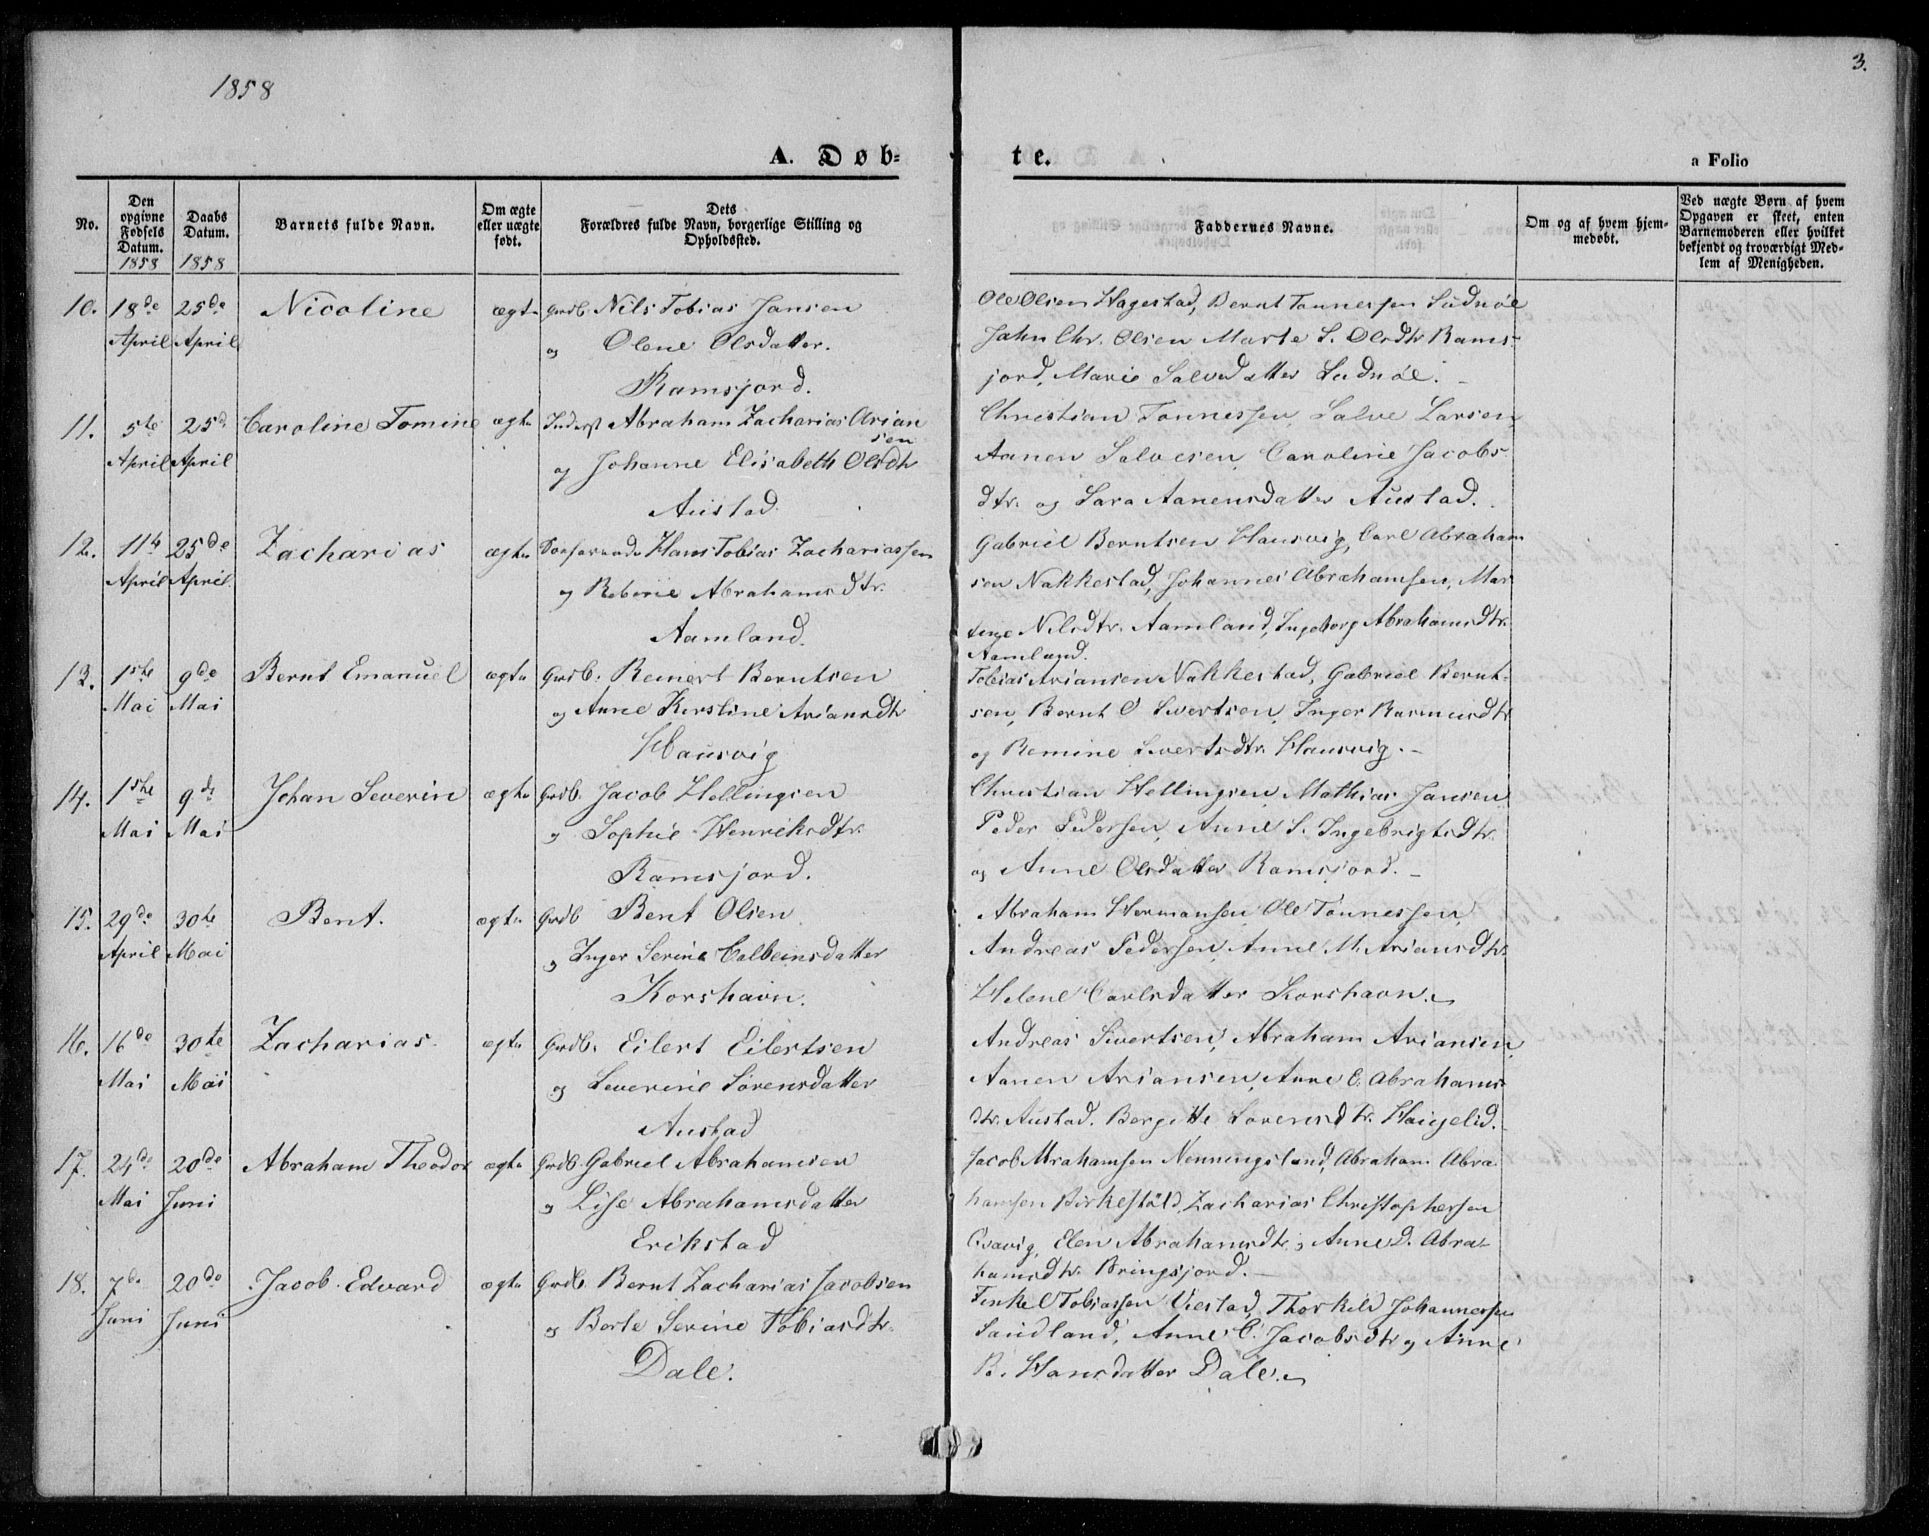 1858
3.
A. Døb=
te.
a Folio
No.
Den opgivne Fødsels Datum. 1858
Daabs Datum. 1858
Barnets fulde Navn.
Om ægte eller uægte født.
Dets Forældres fulde Navn, borgerlige Stilling og Opholdssted.
Faddernes Navne.
Om og af hvem hjemmedøbt.
Ved uægte Børn af hvem Opgaven er skeet, enten Barnemoderen eller hvilket bekjendt og troværdigt Medlem af Menigheden.
10. 18de 25de Nicoline ægte Grdb. Nils Tobias Jansen
April April og Olene Olsdatter.
Ramsjord.
Ole Olsen Hagestad, Bernt Tønnessen
Jahn Chr. Olsen Marte S. Olsdtr Rams-
jord, Marie Salvedatter
11. 5te 25de Caroline Tomine ægte Inderst Abraham Zacharias Arian
sen
April April og Johanne Elisabeth Olsdtr
Austad
Christian Tønnessen, Salve Larsen,
Aanen Salvesen, Caroline Jacobs-
dtr. og Sara Aanensdatter Austad.
12. 11te 25de Zacharias ægte Hans Tobias Zachariassen
April April. og Abrahamsdtr.
Aamland.
Gabriel Berntsen Hausvig, Carl Abraham
sen Nakkestad, Johannes Abrahamsen, Mar
tine Nilsdtr. Aamland, Ingeborg Abrahamsdtr.
Aamland.
13. 1ste 9de Bernt Emanuel ægte Grdb. Reinert Berntsen
Mai Mai og Anne Kirstine Ariansdtr
Hausvig
Tobias Ariansen Nakkestad, Gabriel Bernt-
sen, Bernt O Sivertsen, Inger Rasmusdtr
og Remine Sivertsdtr. Hausvig.
14. 1ste 9de Johan Severin ægte Grdb. Jacob Hellingsen
Mai Mai og Sophie Henriksdtr.
Ramsjord.
Christian Hellingsen, Mathias Jansen
Peder Pedersen, Anne S. Ingebrigtsdtr.
og Anne Olsdatter Ramsjord.
15. 29de 30te Bent. ægte Grdb Bent Olsen
April Mai og Inger Serine Colbeinsdatter
Korshavn.
Abraham Hermansen, Ole Tønnessen,
Andreas Pedersen, Anne M. Ariansdtr.
Helene Carlsdatter Korshavn.
16. 16de 30te Zacharias. ægte Grdb. Eilert Eilertsen
Mai Mai og Severine Sørensdatter
Austad
Andreas Sivertsen, Abraham Ariansen,
Aanen Ariansen, Anne E. Abrahams-
dtr. Austad. Bergitte Sørensdtr. Haugelid.
17. 24de 20de Abraham Theodor ægte Grdb. Gabriel Abrahamsen
Mai Juni og Lise Abrahamsdatter
Erikstad
Jacob Abrahamsen Nenningsland, Abraham Abra-
hamsen Birkestøld, Zacharias Christophersen
Qvavig, Elen Abrahamsdtr. og Anne D. Abra-
hamsdtr. Bringsjord.
18. 7de 20de Jacob Edvard ægte Grdb. Bernt Zacharias Jacobsen
Juni Juni og Berte Serine Tobiasdtr.
Dale.
Tobiassen Viestad, Thorkild Johannessen
Sandland, Anne C. Jacobsdtr og Anne
B. Hansdatter Dale.